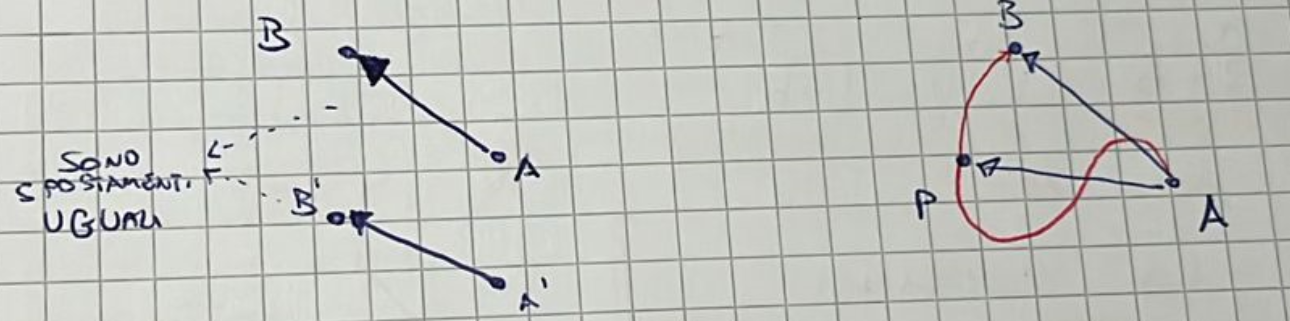 B
A
SONO
SPOSTAMENTI
UGUALI
B'
A'
B
P
A